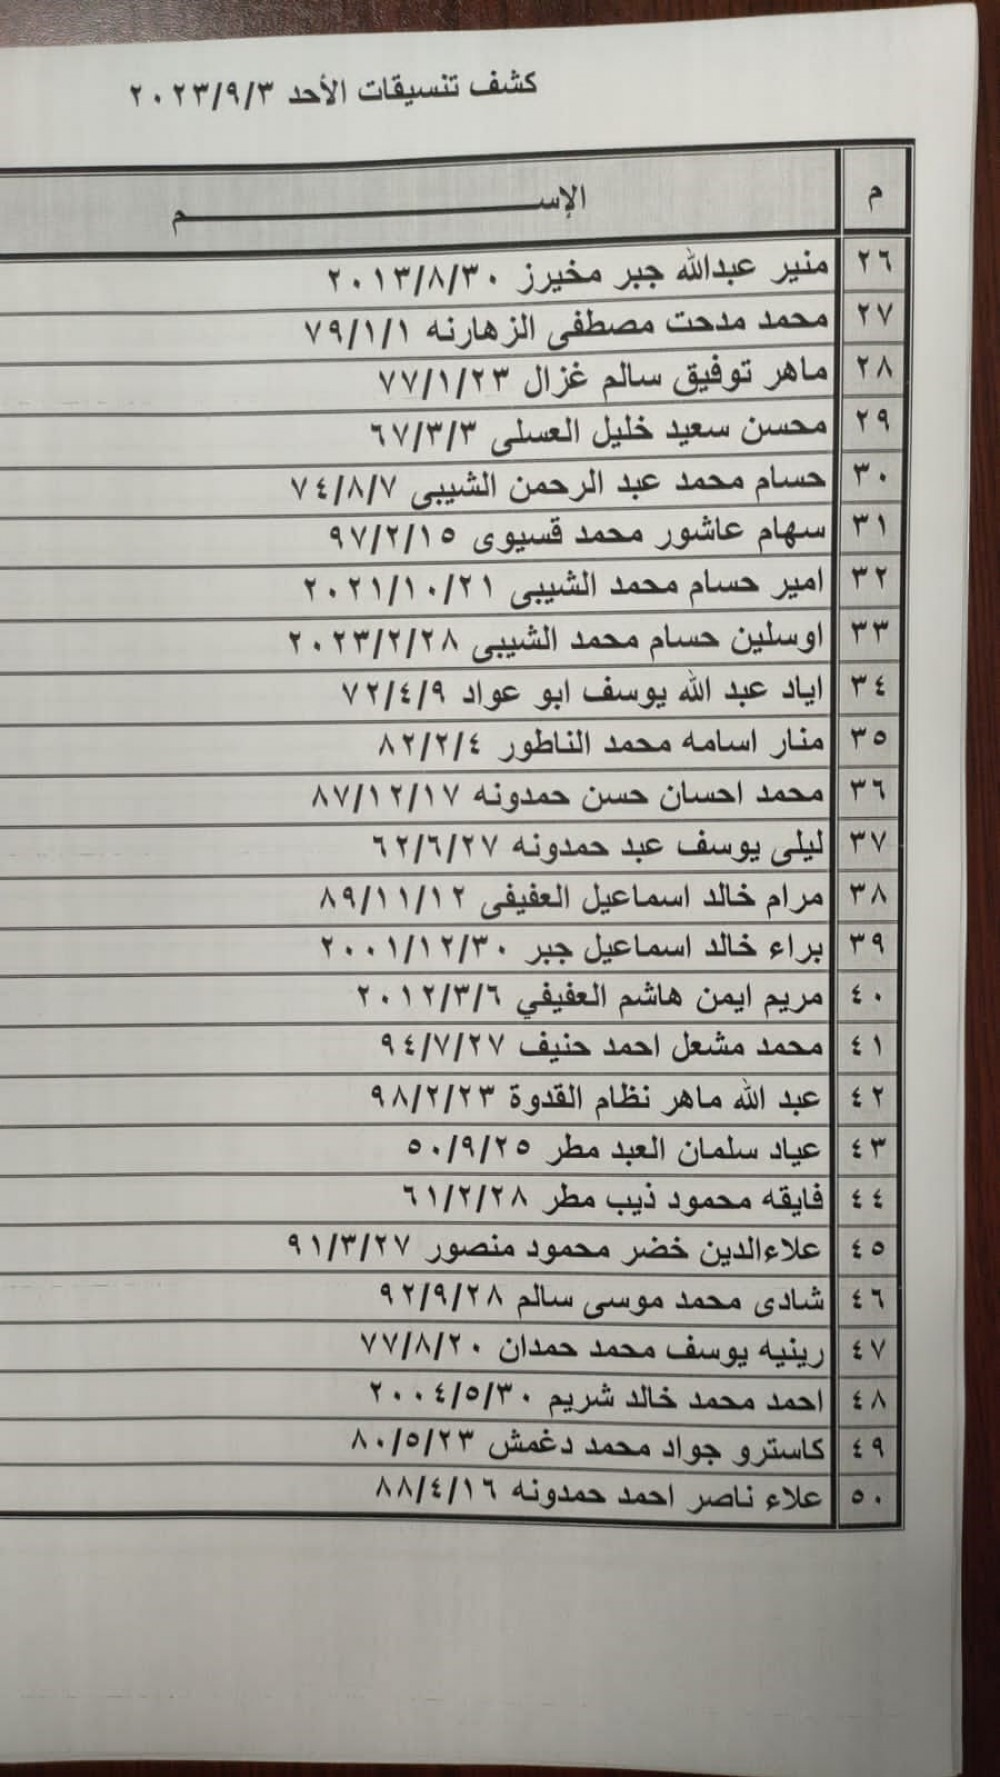 كشف تنسيقات الأحد ٢٠٢٣/٩/٣
م الإســــــــم
٢٦ منير عبدالله جبر مخيرز ٢٠١٣/٨/٣٠
٢٧ محمد مدحت مصطفى الزهارنه ٧٩/١/١
٢٨ ماهر توفيق سالم غزال ٧٧/١/٢٣
٢٩ محسن سعيد خليل العسلى ٦٧/٣/٣
٣٠ حسام محمد عبد الرحمن الشيبى ٧٤/٨/٧
٣١ سهام عاشور محمد قسيوى ٩٧/٢/١٥
٣٢ امير حسام محمد الشيبى ٢٠٢١/١٠/٢١
٣٣ اوسلين حسام محمد الشيبى ٢٠٢٣/٢/٢٨
٣٤ اياد عبد الله يوسف ابو عواد ٧٢/٤/٩
٣٥ منار اسامه محمد الناطور ٨٢/٢/٤
٣٦ محمد احسان حسن حمدونه ٨٧/١٢/١٧
٣٧ ليلى يوسف عبد حمدونه ٦٢/٦/٢٧
٣٨ مرام خالد اسماعيل العفيفى ٨٩/١١/١٢
٣٩ براء خالد اسماعيل جبر ٢٠٠١/١٢/٣٠
٤٠ مريم ايمن هاشم العفيفي ٢٠١٢/٣/٦
٤١ محمد مشعل احمد حنيف ٩٤/٧/٢٧
٤٢ عبد الله ماهر نظام القدوة ٩٨/٢/٢٣
٤٣ عياد سلمان العبد مطر ٥٠/٩/٢٥
٤٤ فايقه محمود ذيب مطر ٦١/٢/٢٨
٤٥ علاءالدين خضر محمود منصور ٩١/٣/٢٧
٤٦ شادى محمد موسى سالم ٩٢/٩/٢٨
٤٧ رينيه يوسف محمد حمدان ٧٧/٨/٢٠
٤٨ احمد محمد خالد شريم ٢٠٠٤/٥/٣٠
٤٩ كاسترو جواد محمد دغمش ٨٠/٥/٢٣
٥٠ علاء ناصر احمد حمدونه ٨٨/٤/١٦